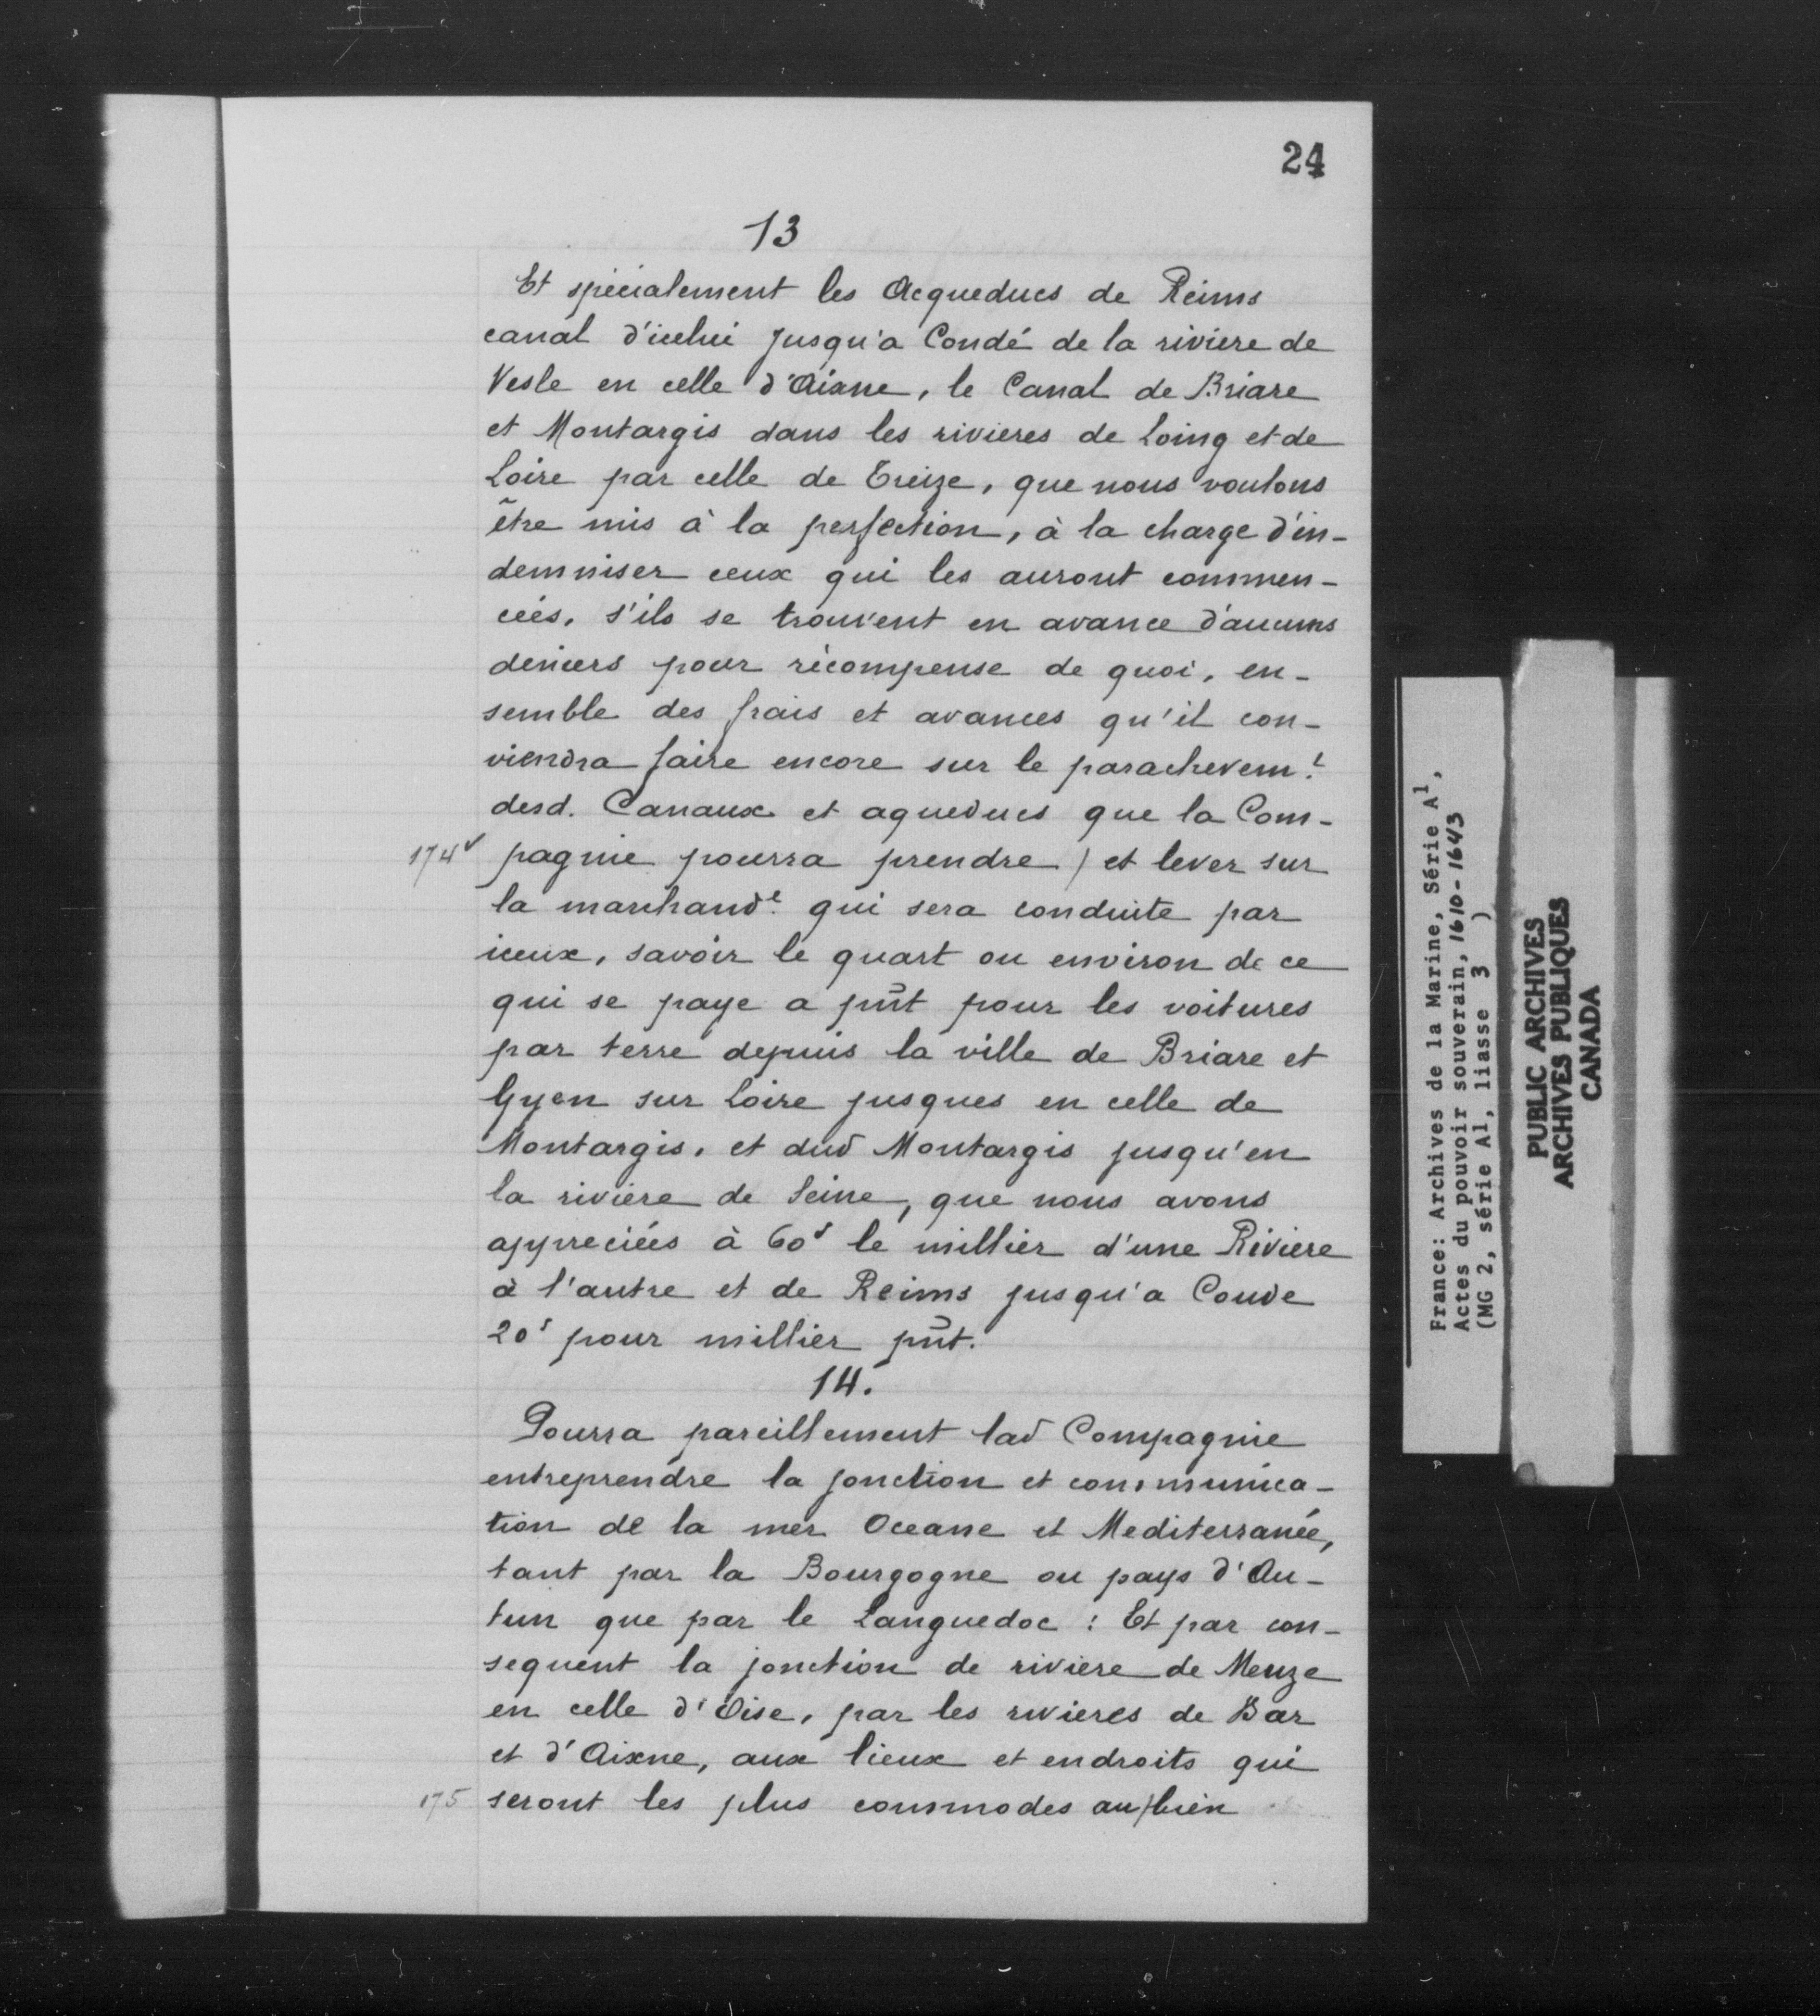 24
13
Et spécialement les Acqueducs de Reims
canal d'icelui jusqu'a Condé de la riviere de
Vesle en celle d'Aixne, le Canal de Briare
et Montargis dans les rivieres de Loing et de
Loire par celle de Treize, que nous voulons
être mis à la perfection, à la charge d'in-
demniser ceux qui les auront commen-
cées, s'ils se trouvent en avance d'aucuns
deniers pour récompense de quoi, en-
semble des frais et avances qu'il con-
viendra faire encore sur le parachevem.t
desd. Canaux et aqueducs que la Com-
174v pagnie pourra prendre / et lever sur
la marchand.e qui sera conduite par
iceux, savoir le quart ou environ de ce
qui se paye a pñt pour les voitures
par terre depuis la ville de Briare et
Gyen sur Loire jusques en celle de
Montargis, et dud Montargis jusqu'en
la riviere de Seine, que nous avons
appreciées à 60s le millier d'une Riviere
à l'autre et de Reims jusqu'a Conde
20s pour millier pñt.
14.
Pourra pareillement lad Compagnie
entreprendre la jonction et communica-
tion de la mer Oceane et Mediterranée,
tant par la Bourgogne ou pays d'Au-
tun que par le Languedoc : Et par con-
sequent la jonction de riviere de Meuze
en celle d'Oise, par les rivieres de Bar
et d'Aixne, aux lieux et endroits qui
175 seront les plus commodes au / bien
France: Archives de la Marine, Série A1,
Actes du pouvoir souverain, 1610-1643
(MG 2, série A1, liasse 3 )
PUBLIC ARCHIVES
ARCHIVES PUBLIQUES
CANADA